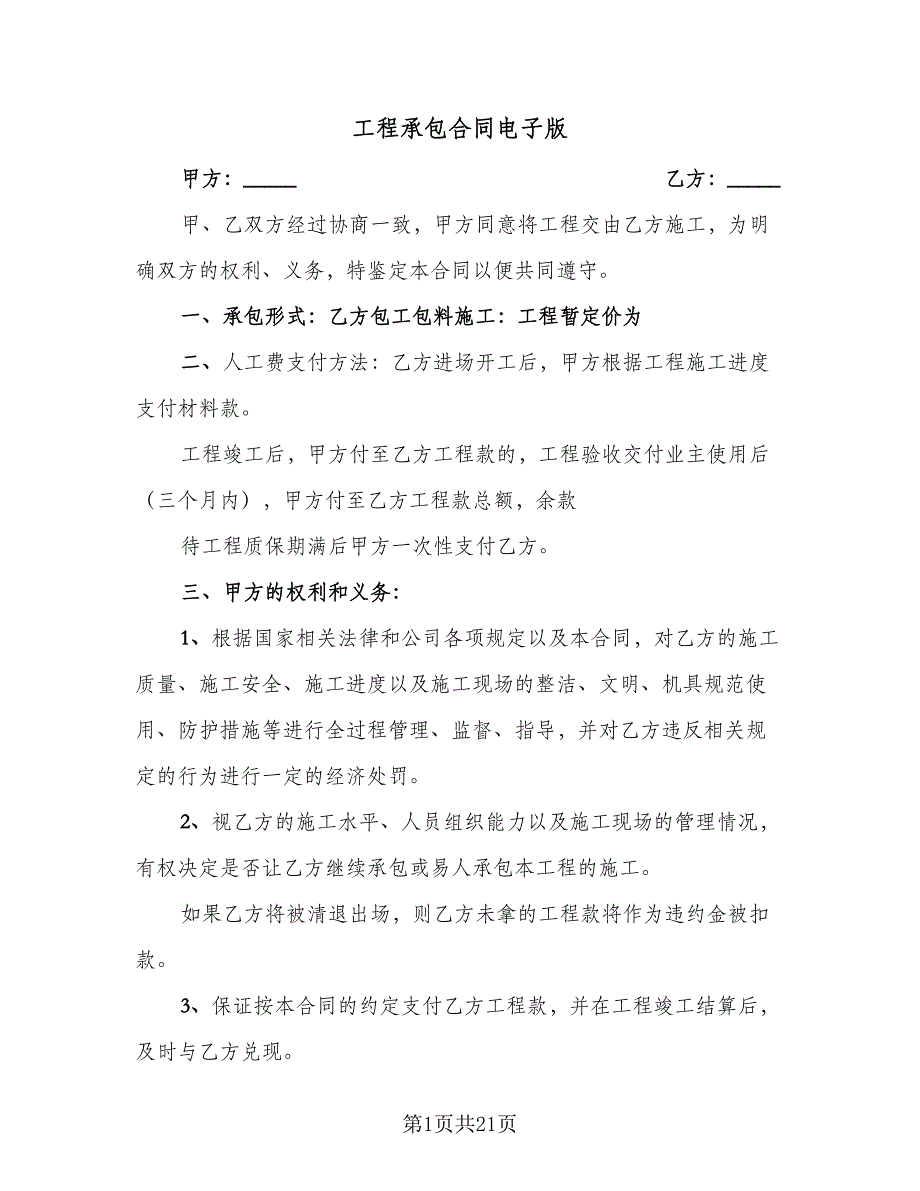 工程承包合同电子版
甲方：_____ 乙方：_____
甲、乙双方经过协商一致，甲方同意将工程交由乙方施工，为明
确双方的权利、义务，特鉴定本合同以便共同遵守。
一、承包形式：乙方包工包料施工：工程暂定价为
二、人工费支付方法：乙方进场开工后，甲方根据工程施工进度
支付材料款。
工程竣工后，甲方付至乙方工程款的，工程验收交付业主使用后
（三个月内），甲方付至乙方工程款总额，余款
待工程质保期满后甲方一次性支付乙方。
三、甲方的权利和义务：
1、根据国家相关法律和公司各项规定以及本合同，对乙方的施工
质量、施工安全、施工进度以及施工现场的整洁、文明、机具规范使
用、防护措施等进行全过程管理、监督、指导，并对乙方违反相关规
定的行为进行一定的经济处罚。
2、视乙方的施工水平、人员组织能力以及施工现场的管理情况，
有权决定是否让乙方继续承包或易人承包本工程的施工。
如果乙方将被清退出场，则乙方未拿的工程款将作为违约金被扣
款。
3、保证按本合同的约定支付乙方工程款，并在工程竣工结算后，
及时与乙方兑现。
第1页共21页